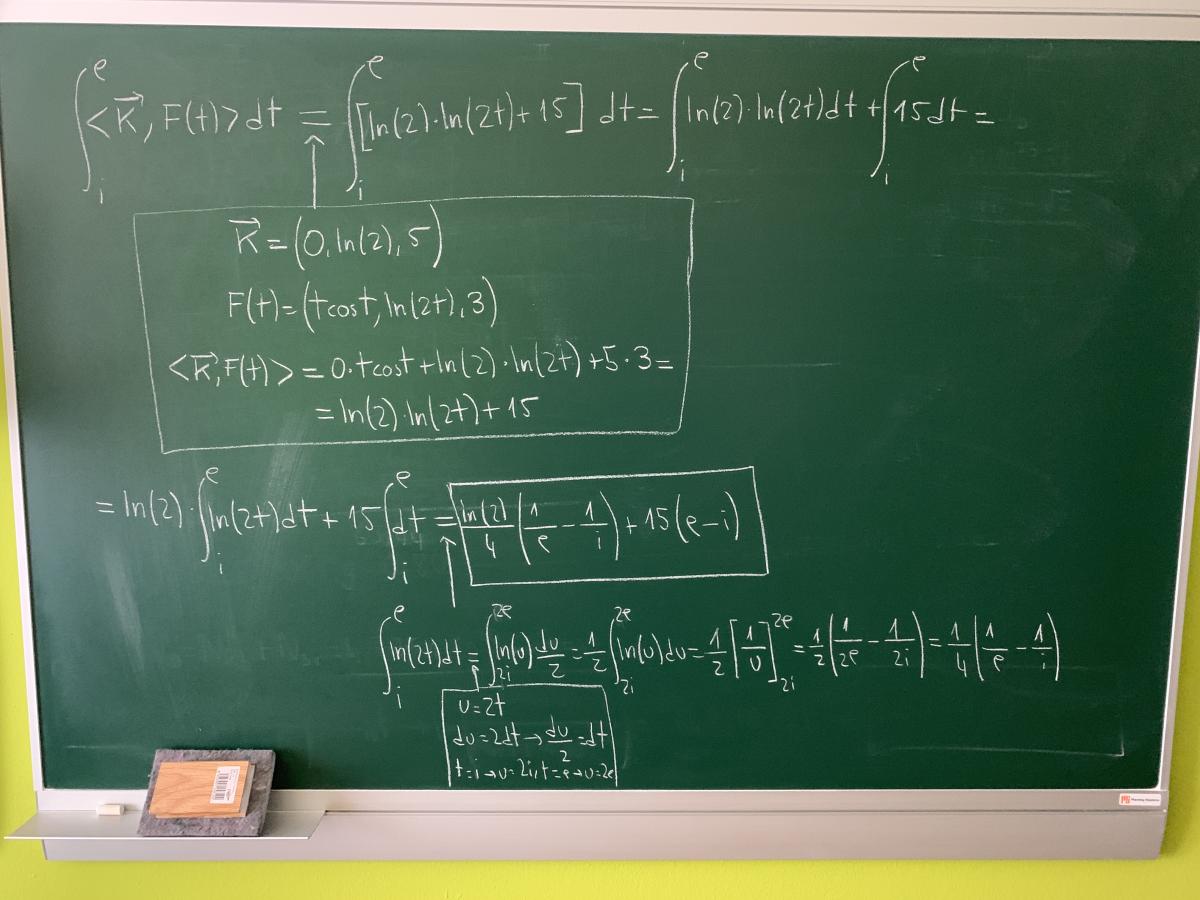 ∫_i^e <K⃗, F(t)> dt = ∫_i^e [ln(2)·ln(2t)+15] dt = ∫_i^e ln(2)·ln(2t)dt + ∫_i^e 15dt =
K⃗ = (0, ln(2), 5)
F(t) = (tcost, ln(2t), 3)
<K⃗, F(t)> = 0·tcost + ln(2)·ln(2t) + 5·3 =
= ln(2)·ln(2t) + 15
= ln(2)·∫_i^e ln(2t)dt + 15 ∫_i^e dt = ln(2)/4 (1/e - 1/i) + 15(e-i)
∫_i^e ln(2t)dt = ∫_{2i}^{2e} ln(u) du/2 = 1/2 ∫_{2i}^{2e} ln(u)du = 1/2 [1/u]_{2i}^{2e} = 1/2 (1/2e - 1/2i) = 1/4 (1/e - 1/i)
u=2t
du=2dt → du/2 = dt
t=i → u=2i, t=e → u=2e